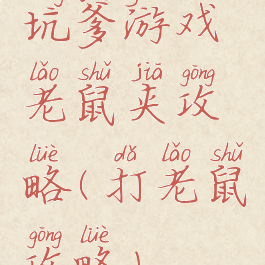 坑爹游戏
lǎo shǔ jiā gōng
老鼠夹攻
lüè dǎ lǎo shǔ
略(打老鼠
gōng lüè
攻略)